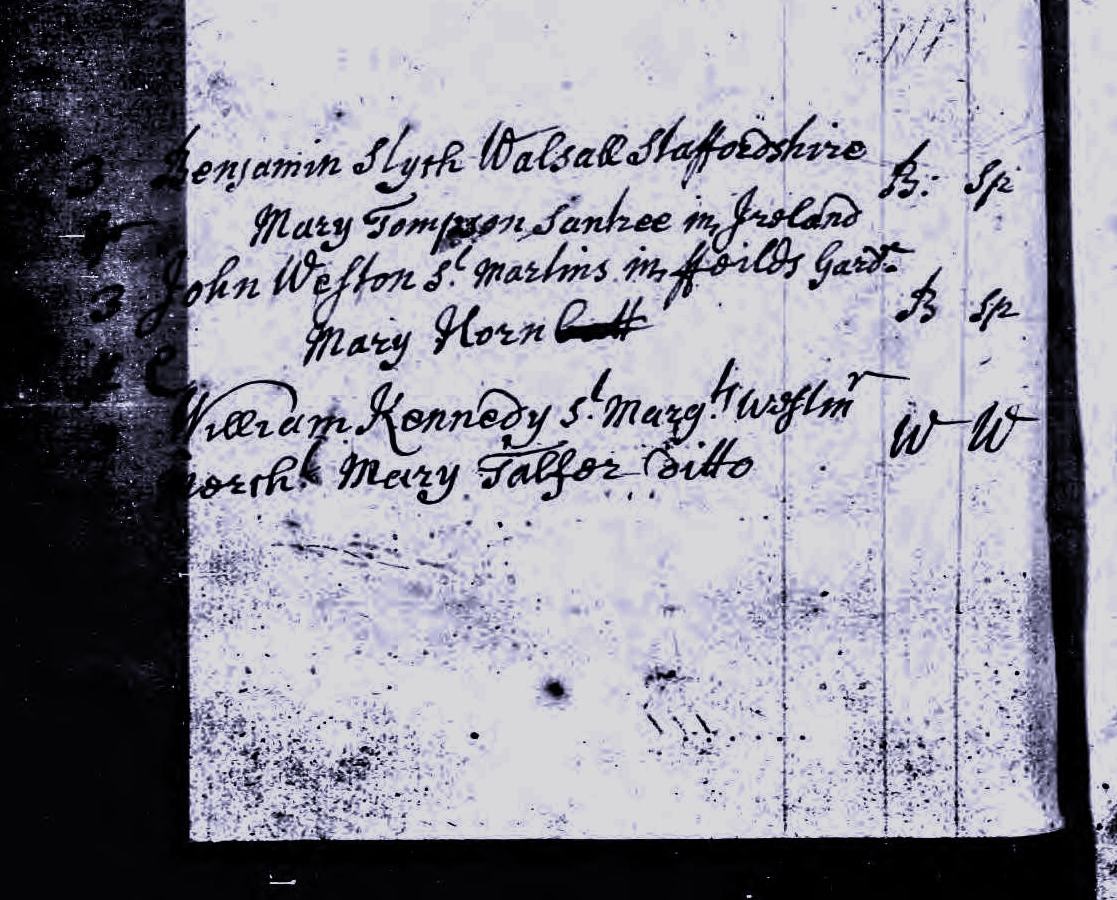 3 Benjamin Slyth Walsall Staffordshire B: Sp
Mary Tompson Santree in Ireland
3 John Weston St. Martins in ffeilds Gardr. B Sp
Mary Horn
William Kennedy St. Margts Westmr W W
Mercht. Mary Talfer Ditto